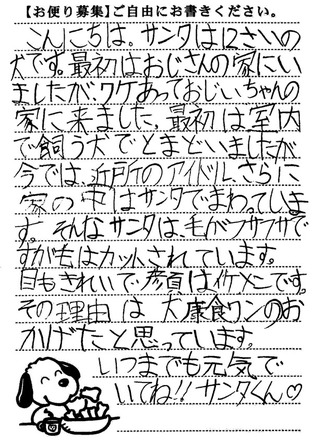 【お便り募集】ご自由にお書きください。
こんにちは。サンタは12さいの
犬です。最初はおじさんの家にい
ましたが、ワケあっておじいちゃんの
家に来ました。最初は室内
で飼う犬でとまどいましたが
今では、近所のアイドル。さらに
家の中はサンタでまわってしま
す。そんなサンタは、毛がフサフサで
すが冬はカットされています。
目もきれいで、顔はイケメンです。
その理由は犬康食ワンのお
かげだと思っています。
いつまでも元気で
いてね!!サンタくん♡